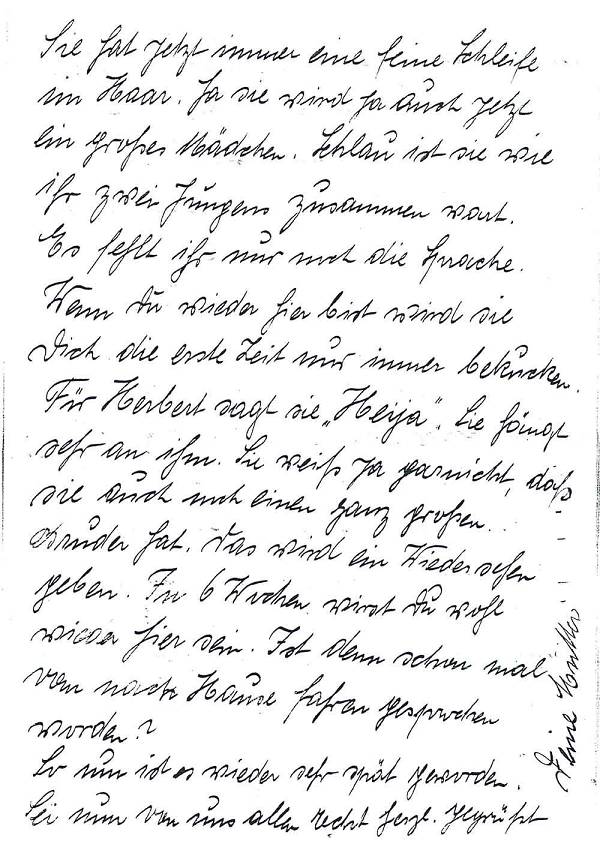 Sie hat jetzt immer eine feine Schleife
im Haar. Ja sie wird ja auch jetzt
ein großes Mädchen. Schlau ist sie wie
ihr zwei Jungens zusammen wart.
Es fehlt ihr nur noch die Sprache.
Wenn du wieder hier bist wird sie
Dich die erste Zeit nur immer bekucken.
Für Herbert sagt sie „Heija“. Sie hängt
sehr an ihm. Sie weiß ja garnicht, daß
sie auch noch einen ganz großen
Bruder hat. Das wird ein Wiedersehen
geben. In 6 Wochen wirst du wohl
wieder hier sein. Ist denn schon mal
von nach Hause fahren gesprochen
worden?
So nun ist es wieder sehr spät geworden.
Sei nun von uns allen recht herzl. gegrüßt
Deine Mutter